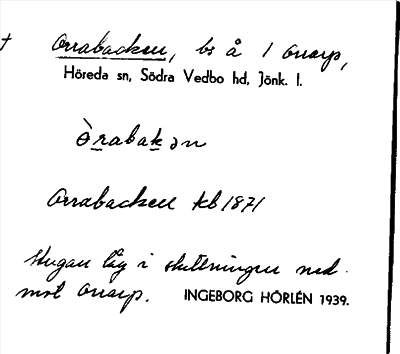 † Orrabacken, bs å 1 Orrarp,
Höreda sn, Södra Vedbo hd, Jönk. l.
òrabakən
Orrabacken kb 1871
Stugan låg i sluttningen ned
mot Orrarp. INGEBORG HÖRLÉN 1939.